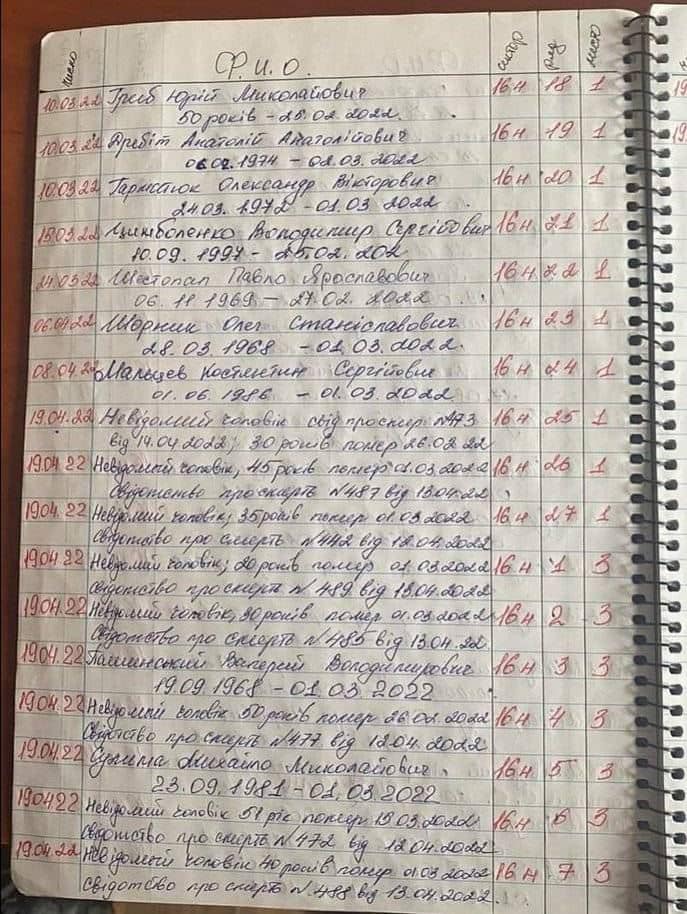 число Ф.И.О. сектор ряд место
10.03.22 Гриб Юрій Миколайович 16н 18 1
50 років – 25.02.2022.
10.03.22 Дребіт Анатолій Анатолійович 16н 19 1
1974 – 02.03.2022
10.03.22 Олександр Вікторович 16н 20 1
24.03.1972 – 01.03 2022
15.03.22 Цимбаленко Володимир Сергійович 16н 21 1
10.09.1997 – 25.02.202
24.03.22 Шестопал Павло Ярославович 16н 22 1
06.11 1969 – 27.02. 2022
06.04.22 Шорник Олег Станіславович 16н 23 1
28.03.1968 – 01.03.2022.
08.04.22 Мальцев Костянтин Сергійович 16н 24 1
01.06.1986 – 01.03.2022
19.04.22 Невідомий чоловік свід про смер N473 16н 25 1
від 14.04 2022; 30 років помер 26.02 22
19.04 22 Невідомий чоловік, 45 років помер 01.03 2022 16н 26 1
Свідотство про смерть N487 від 13.04.22
19.04.22 Невідомий чоловік; 35 років помер 01.03 2022 16н 27 1
Свідотство про смерть N442 від 12.04.2022
19.04 22 Невідомий чоловік; 20 років помер 01.03.2022 16н 1 3
свідотство про смерть N 489 від 13.04.2022
19.04.22 Невідомий чоловік, 30 років помер 01.03.2022 16н 2 3
Свідотство про смерть N485 від 13.04.22
19.04.22 Валерій Володимирович 16н 3 3
19.09.1968 – 01.03 2022
19.04.22 Невідомий чоловік 50 років помер 26.02.2022 16н 4 3
Свідотство про смерть N477 від 12.04.2022
19.04.22 Сулима Михайло Миколайович. 16н 5 3
23.09.1981 – 01.03.2022
19.04.22 Невідомий чоловік 51 рік помер 15.03.2022 16н 6 3
свідотство про смерть N472 від 12.04.2022.
19.04.22 Невідомий чоловік 40 років помер 01.03 2022 16н 7 3
свідотство про смерть N.488 від 13.04.2022.